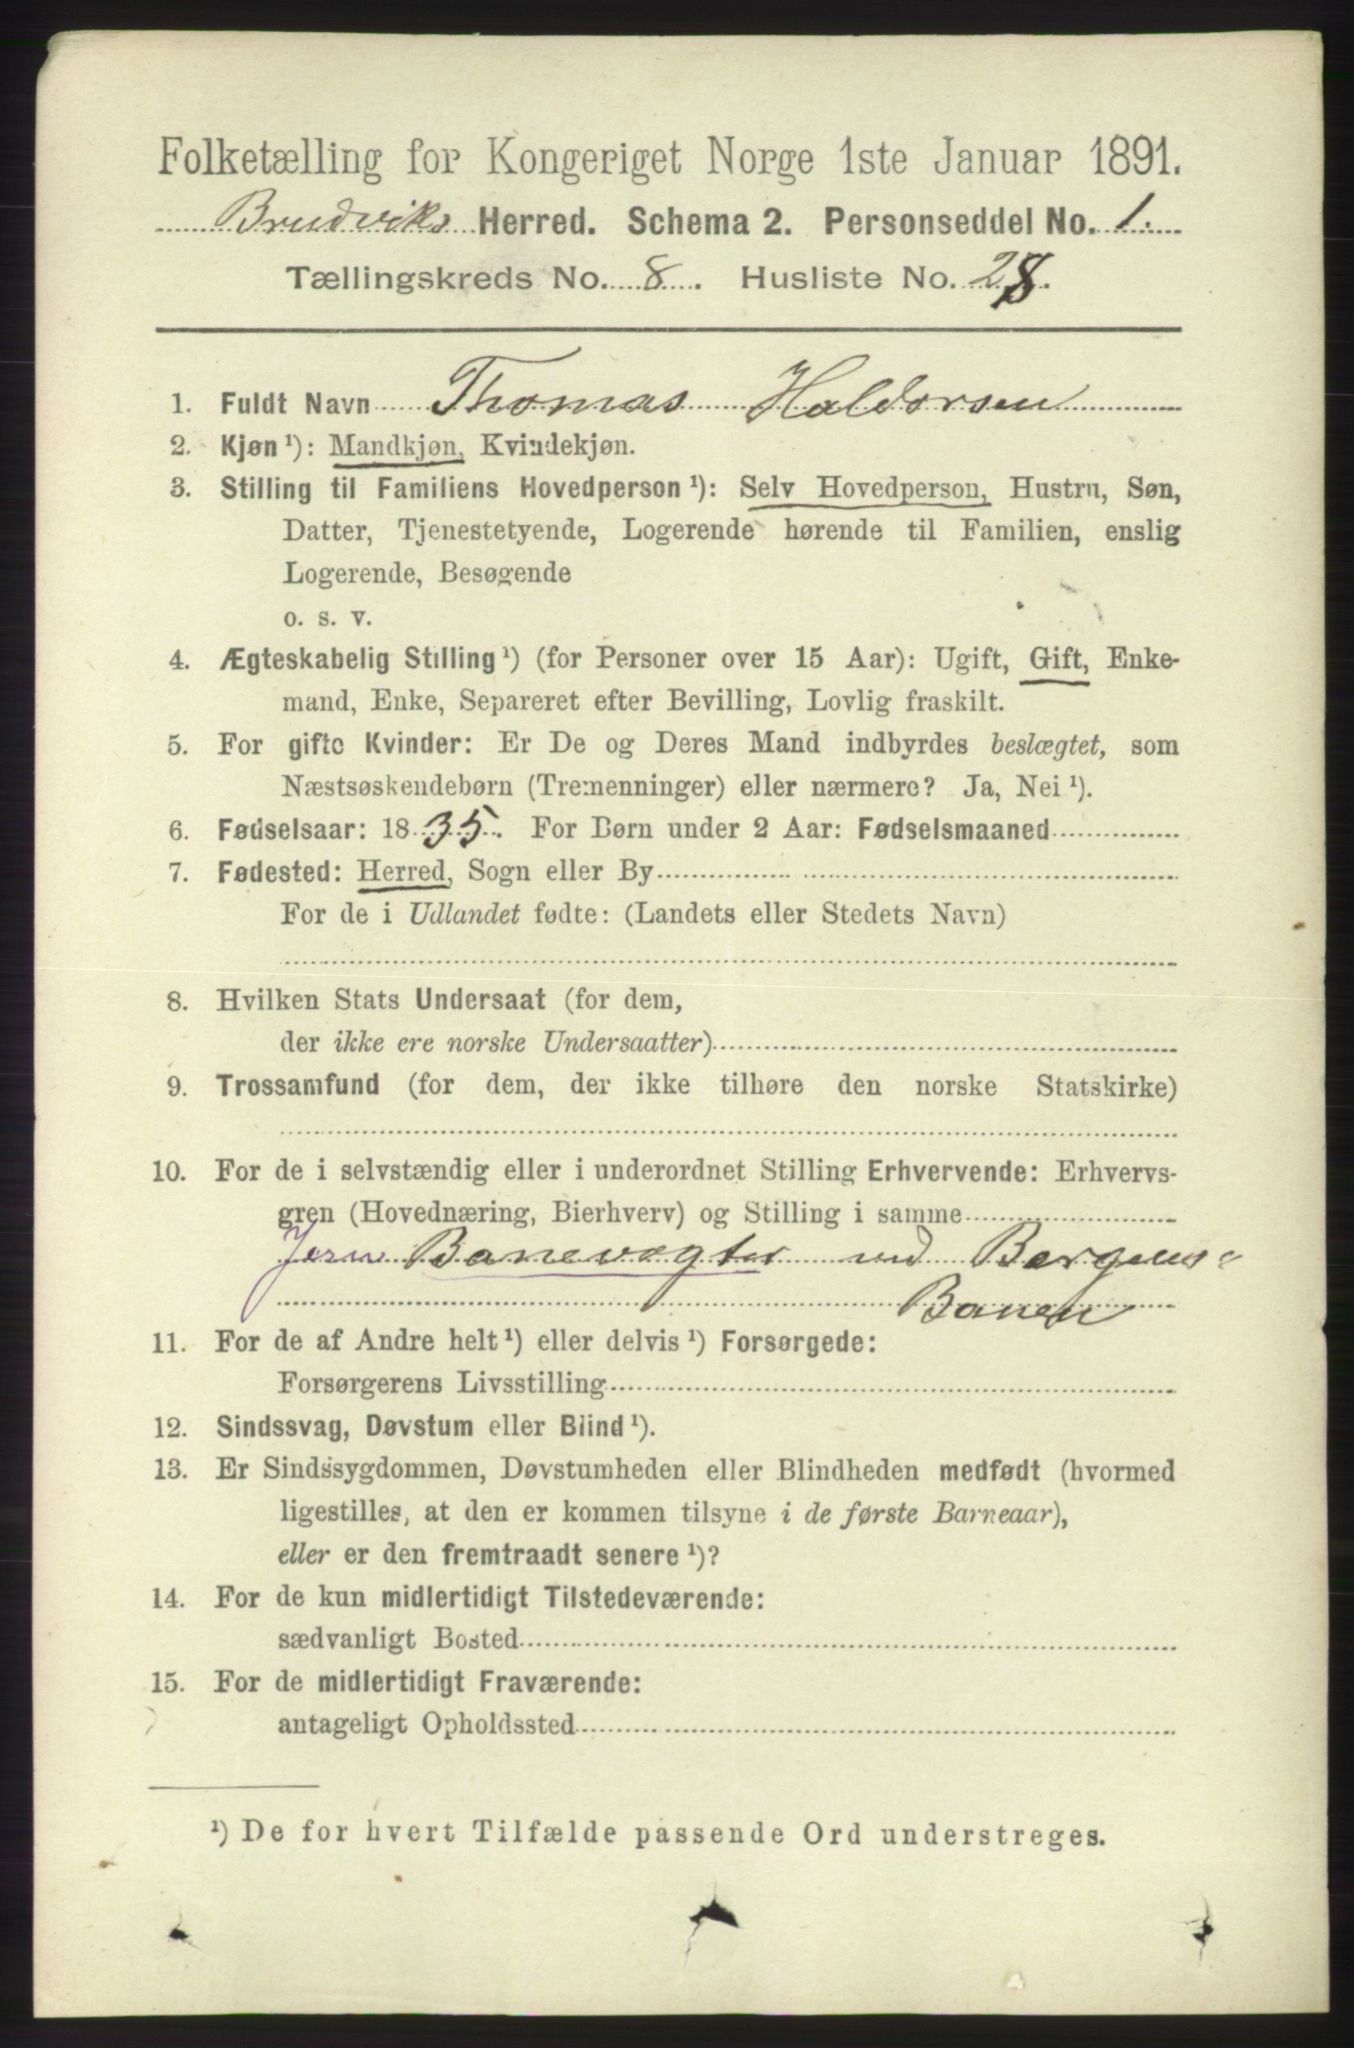 Folketælling for Kongeriget Norge 1ste Januar 1891.
Brudviks Herred. Schema 2. Personseddel No. 1.
Tællingskreds No. 8. Husliste No. 28.
1. Fuldt Navn Thomas Haldorsen
2. Kjøn ¹): Mandkjøn, Kvindekjøn.
3. Stilling til Familiens Hovedperson ¹): Selv Hovedperson, Hustru, Søn,
Datter, Tjenestetyende, Logerende hørende til Familien, enslig
Logerende, Besøgende
o. s. v.
4. Ægteskabelig Stilling ¹) (for Personer over 15 Aar): Ugift, Gift, Enke-
mand, Enke, Separeret efter Bevilling, Lovlig fraskilt.
5. For gifte Kvinder: Er De og Deres Mand indbyrdes beslægtet, som
Næstsøskendebørn (Tremenninger) eller nærmere? Ja, Nei ¹).
6. Fødselsaar: 1835. For Børn under 2 Aar: Fødselsmaaned
7. Fødested: Herred, Sogn eller By
For de i Udlandet fødte: (Landets eller Stedets Navn)
8. Hvilken Stats Undersaat (for dem,
der ikke ere norske Undersaatter)
9. Trossamfund (for dem, der ikke tilhøre den norske Statskirke)
10. For de i selvstændig eller i underordnet Stilling Erhvervende: Erhvervs-
gren (Hovednæring, Bierhverv) og Stilling i samme
Jern Banevogter ved Bergens-
Banen
11. For de af Andre helt ¹) eller delvis ¹) Forsørgede:
Forsørgerens Livsstilling
12. Sindssvag, Døvstum eller Blind ¹).
13. Er Sindssygdommen, Døvstumheden eller Blindheden medfødt (hvormed
ligestilles, at den er kommen tilsyne i de første Barneaar),
eller er den fremtraadt senere ¹)?
14. For de kun midlertidigt Tilstedeværende:
sædvanligt Bosted
15. For de midlertidigt Fraværende:
antageligt Opholdssted
¹) De for hvert Tilfælde passende Ord understreges.